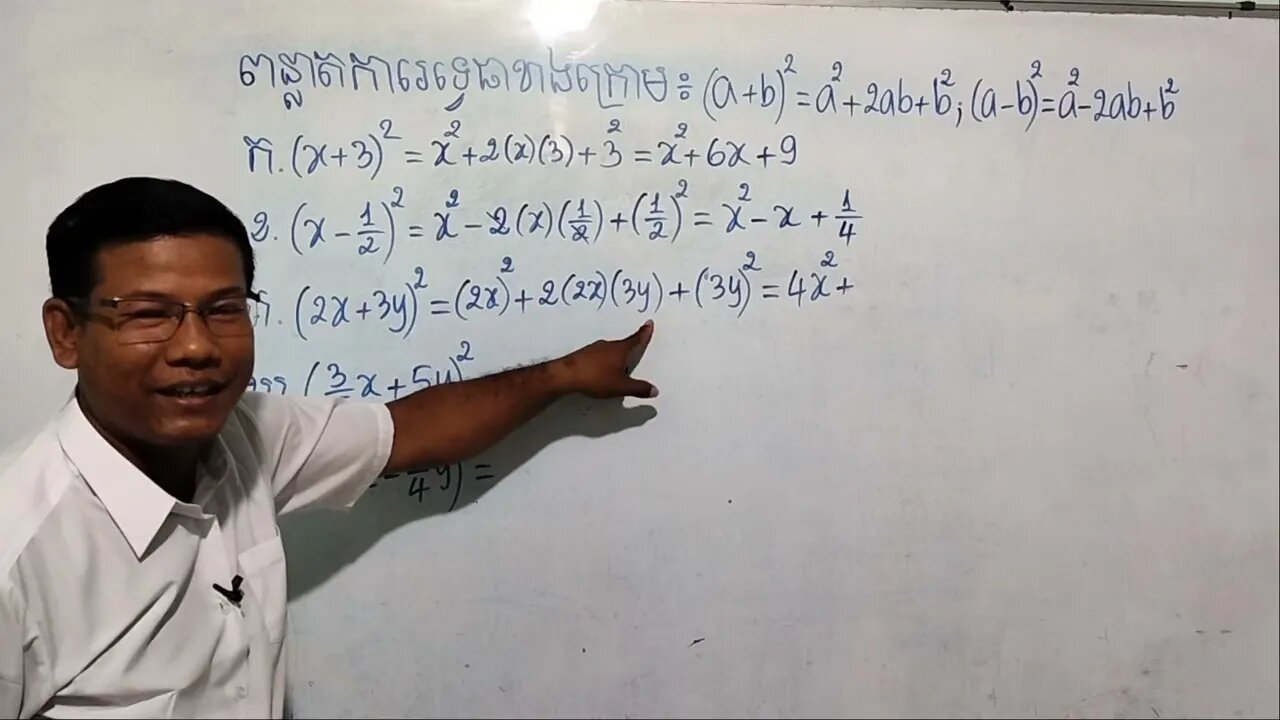 ពន្លាតការេទ្វេធាខាងក្រោម៖ (a+b)² = a² + 2ab + b² ; (a-b)² = a² - 2ab + b²
ក. (x+3)² = x² + 2(x)(3) + 3² = x² + 6x + 9
ខ. (x - 1/2)² = x² - 2(x)(1/2) + (1/2)² = x² - x + 1/4
គ. (2x+3y)² = (2x)² + 2(2x)(3y) + (3y)² = 4x² +
x + 5y)²
4 y) =